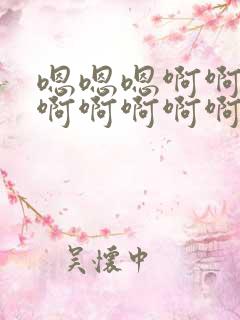 嗯嗯嗯啊啊
啊啊啊啊啊
吴懷中